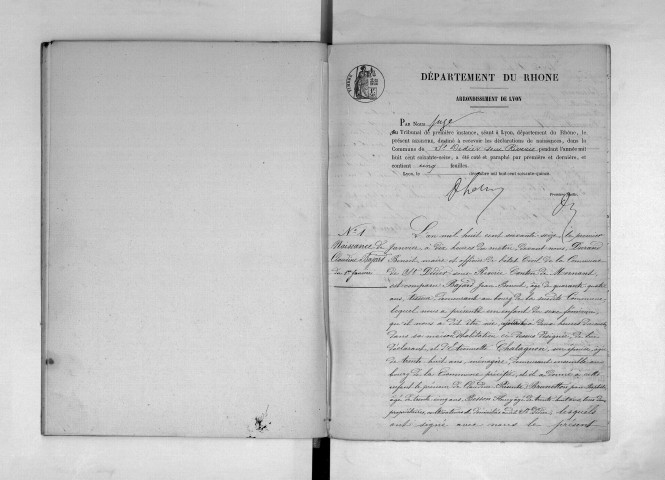 DÉPARTEMENT DU RHONE
ARRONDISSEMENT DE LYON
PAR NOUS, Juge
du Tribunal de première instance, séant à Lyon, département du Rhône, le
présent registre, destiné à recevoir les déclarations de naissances, dans la
Commune de St Didier sous Riverie pendant l'année mil
huit cent soixante-seize, a été coté et paraphé par premier et dernière, et
contient cinq feuilles.
Lyon, le décembre mil huit cent soixante-quinze.
Premier
No 1
Naissance de
Claudine Bajard
du 1er Janvier
L'an mil huit cent soixante seize, le premier
janvier à dix heures du matin devant nous, Durand
Benoit, maire et officier de l'état Civil de la Commune
de St Didier sous Riverie Canton de Mornant
est comparu Bajard Jean Benoit, âgé de quarante quatre
ans, demeurant au bourg de la susdite Commune,
lequel nous a présenté un enfant du sexe féminin,
qu'il nous a dit être né à deux heures du matin
dans sa maison d'habitation ci dessus désignée, de lui
déclarant, et d'Etiennette Chatagnon, son épouse, âgée
de trente huit ans, ménagère, demeurant ensemble au
bourg de la Commune précitée, et il a donné à cet
enfant le prénom de Claudine. Présents
âgé de trente cinq ans, âgé de trente huit ans, tous deux
propriétaires, à St Didier, lesquels
ont signé avec nous le présent